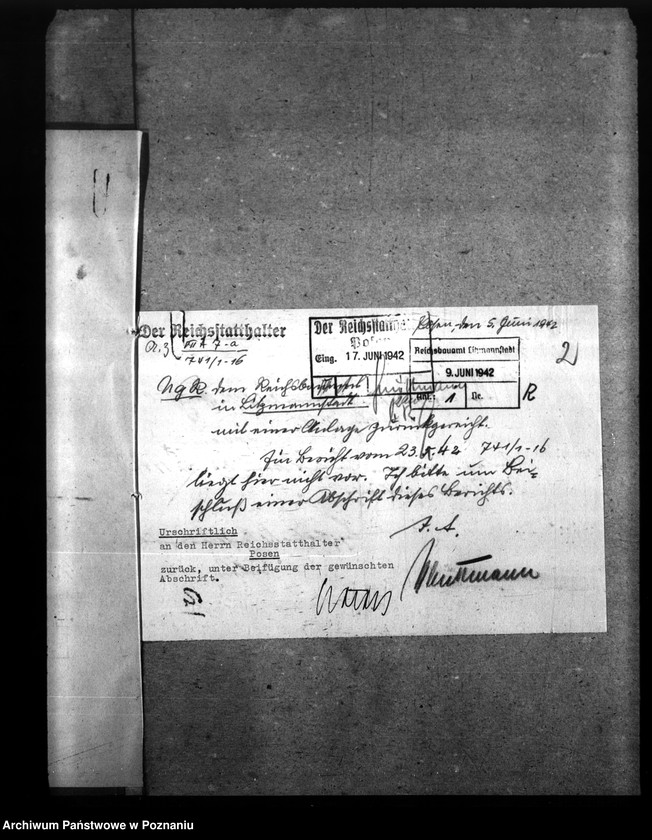 Der Reichsstatthalter
Der Reichsstatthalter
Posen
Eing. 17. JUNI 1942
Posen, den 5. Juni 1942
Reichsbauamt Litzmannstadt
9. JUNI 1942
Anl.: 1 Nr.
2
R
VII A 7-a
741/1-16
dem Reichsbauamt
in Litzmannstadt
mit einer Anlage zurückgereicht.
Ein Bericht vom 23. 42 741/1-16
liegt hier nicht vor. Ich bitte um Bei-
schluß einer Abschrift dieses Berichts.
I. A.
Urschriftlich
an den Herrn Reichsstatthalter
Posen
zurück, unter Beifügung der gewünschten
Abschrift.
Archiwum Państwowe w Poznaniu